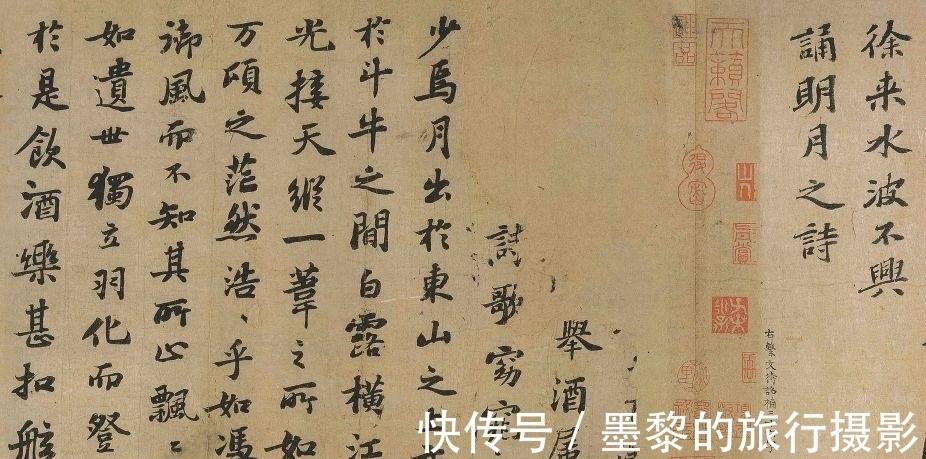 徐来水波不興
誦明月之詩
右繫文待詔補
天籟閣
舉酒屬
詩歌窈
少焉月出於東山之
於斗牛之間白露橫江
光接天縱一葦之所如
万頃之茫然浩〻乎如馮
御風而不知其所止飄〻
如遺世獨立羽化而登
於是飲酒樂甚扣舷
快传号 / 墨黎的旅行摄影